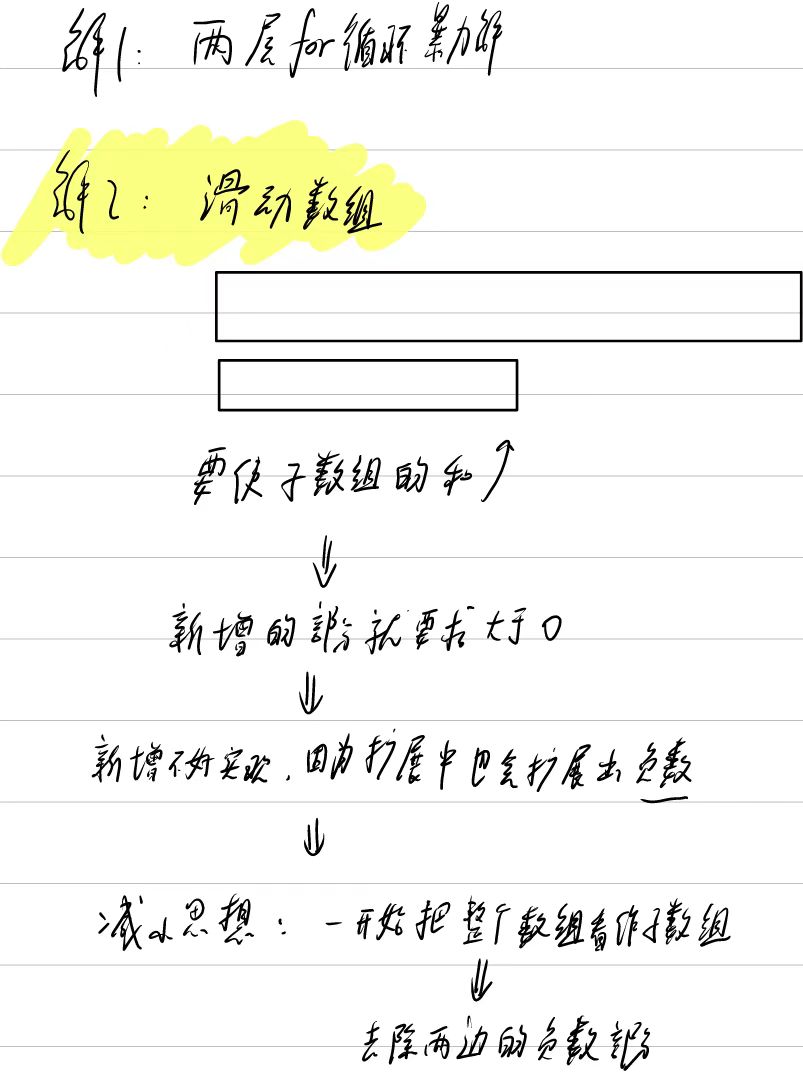 解1: 两层for循环暴力解
解2: 滑动数组
要使子数组的和↗
⇓
新增的部分就要求大于0
⇓
新增不好实现,因为扩展中包含扩展出负数
⇓
减小思想: 一开始把整个数组看作子数组
⇓
去除两边的负数部分